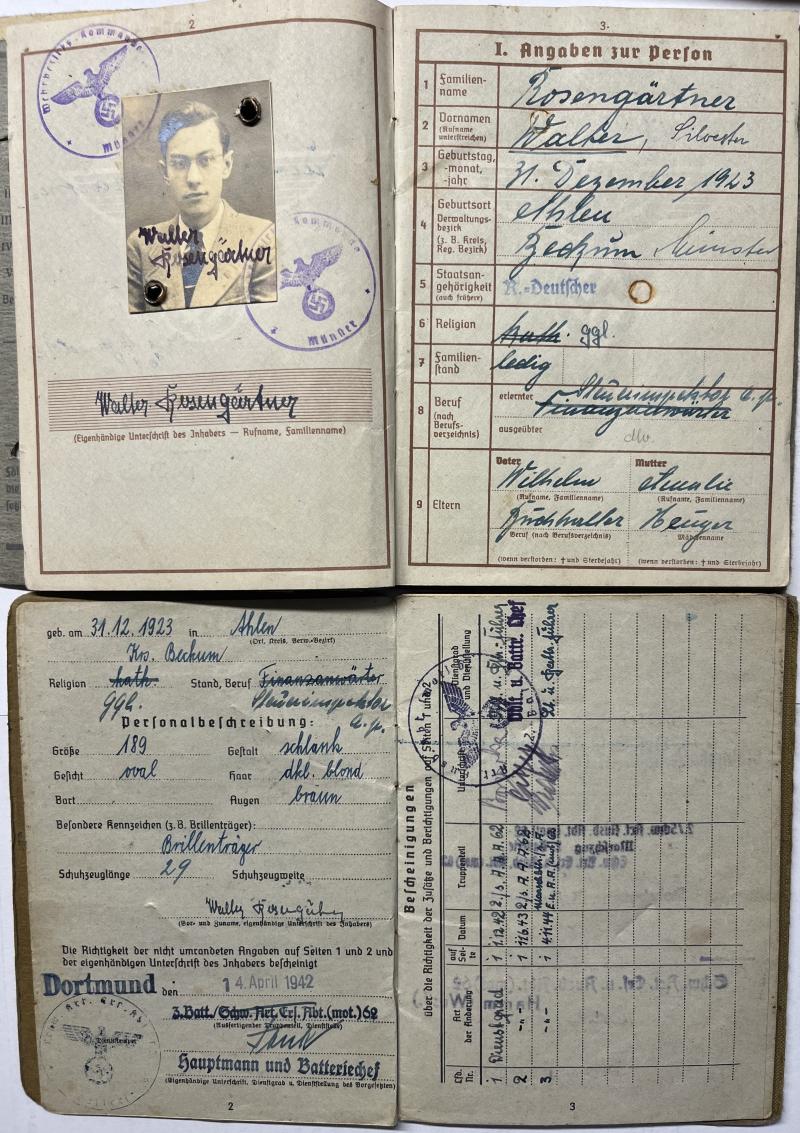 2
Wehrbezirks-Kommando
Münster
Walter
Rosengärtner
Walter Rosengärtner
(Eigenhändige Unterschrift des Inhabers — Rufname, Familienname)
3
I. Angaben zur Person
1 Familien-
name
Rosengärtner
2 Vornamen
(Rufname
unterstreichen)
Walter, Silvester
3 Geburtstag,
-monat,
-jahr
31. Dezember 1923
4 Geburtsort
Verwaltungs-
bezirk
(z. B. Kreis,
Reg. Bezirk)
Ahlen
Beckum Münster
5 Staatsan-
gehörigkeit
(auch frühere)
R.-Deutscher
6 Religion
kath. ggl.
7 Familien-
stand
ledig
8 Beruf
(nach
Berufs-
verzeichnis)
erlernter
Steuerinspektor a. p.
Finanzanwärter
ausgeübter
9 Eltern
Vater
Mutter
Wilhelm
Amalie
(Rufname, Familienname)
(Rufname, Familienname)
Buchhalter
Heuger
Beruf (nach Berufsverzeichnis)
Mädchenname
(wenn verstorben: † und Sterbejahr)
(wenn verstorben: † und Sterbejahr)
geb. am 31.12.1923 in Ahlen
(Ort, Kreis, Verw.-Bezirk)
Krs. Beckum
Religion kath. Stand, Beruf Finanzanwärter
ggl. Steuerinspektor
a. p.
Personalbeschreibung:
Größe 189 Gestalt schlank
Gesicht oval Haar dkl. blond
Bart Augen braun
Besondere Kennzeichen (z. B. Brillenträger):
Brillenträger
Schuhzeuglänge 29 Schuhzeugweite
Walter Rosengärtner
(Vor- und Zuname, eigenhändige Unterschrift des Inhabers)
Die Richtigkeit der nicht umrandeten Angaben auf Seiten 1 und 2 und
der eigenhändigen Unterschrift des Inhabers bescheinigt
Dortmund den 14. April 1942
3. Batt./Schw. Art. Ers. Abt. (mot.) 62
(Ausfertigender Truppenteil, Dienststelle)
Hauptmann und Batteriechef
(Eigenhändige Unterschrift, Dienstgrad u. Dienststellung des Vorgesetzten)
Dienststempel
2
Bescheinigungen
über die Richtigkeit der Zusätze und Berichtigungen auf Seiten 1 und 2
Lfd. Nr.
Art der Änderung
auf Seite
Datum
Truppenteil
Unterschrift
Dienstgrad und Dienststellung
1 Dienstgrad 1 1.12.42
2 -"- 1 11.6.43
Oblt. u. Battr. Chef
3 -"- 1 4.11.44
3